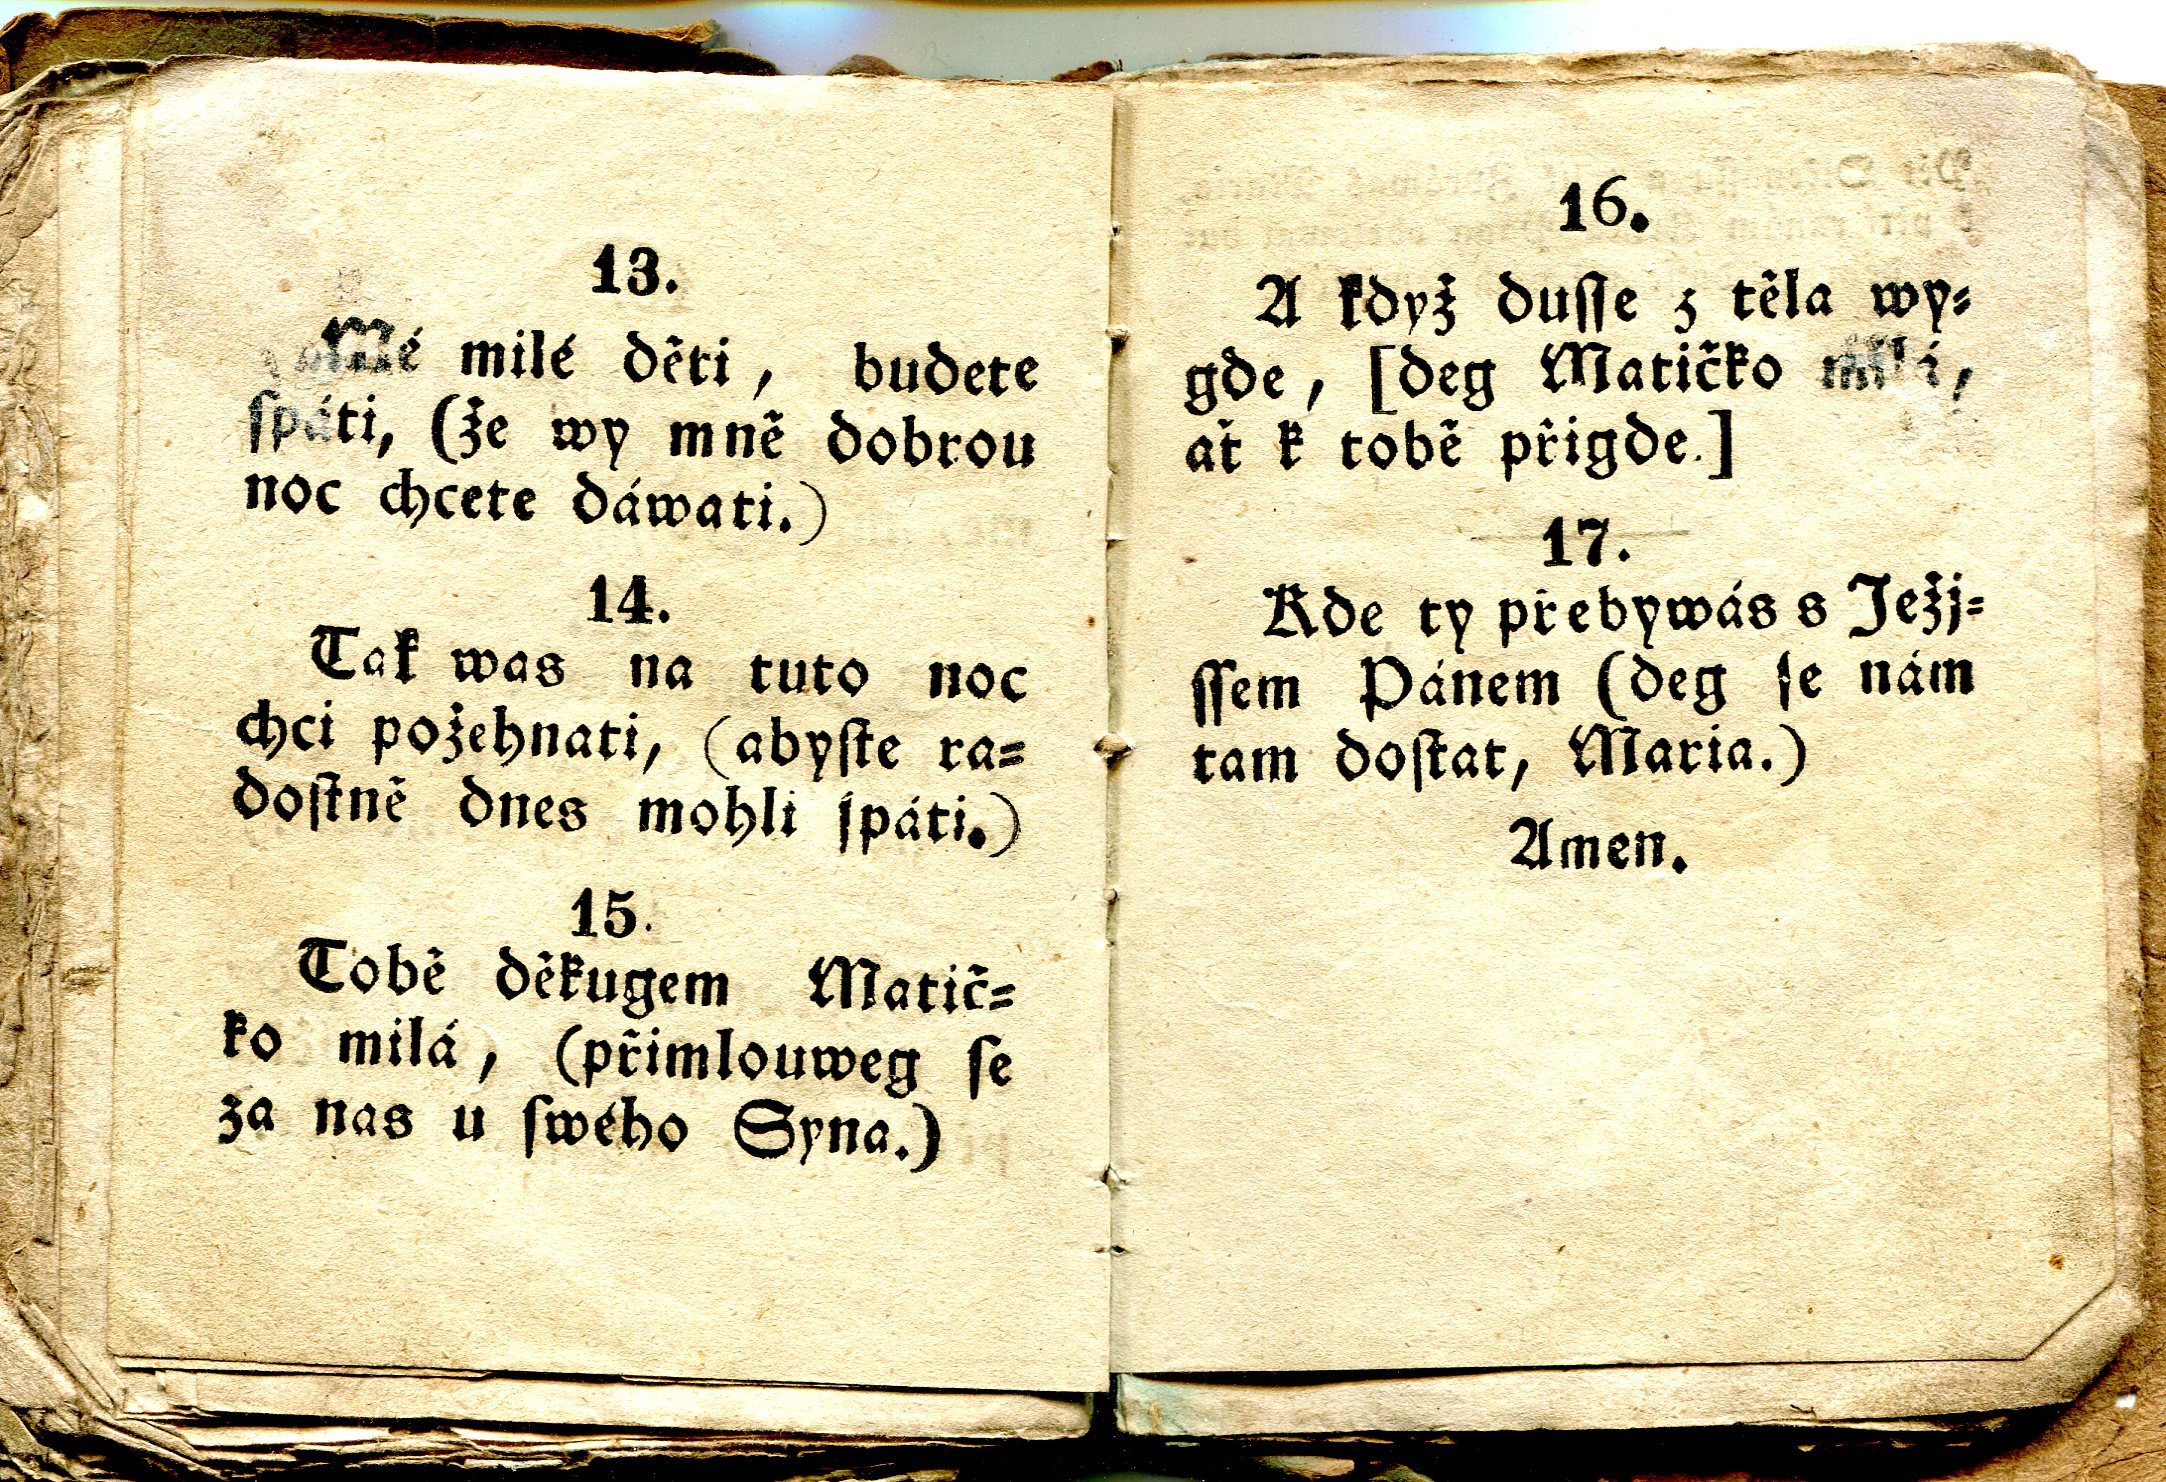 13.
Mé milé děti, budete
ſpáti, (že wy mně dobrou
noc chcete dáwati.)
14.
Tak was na tuto noc
chci požehnati, (abyſte ra=
doſtně dnes mohli ſpáti.)
15.
Tobě děkugem Matič=
ko milá, (přimlouweg ſe
za nas u ſwého Syna.)
16.
A když duſſe z těla wy=
gde, [deg Matičko milá,
ať k tobě přigde.]
17.
Kde ty přebywás s Ježj=
ſſem Pánem (deg ſe nám
tam doſtat, Maria.)
Amen.